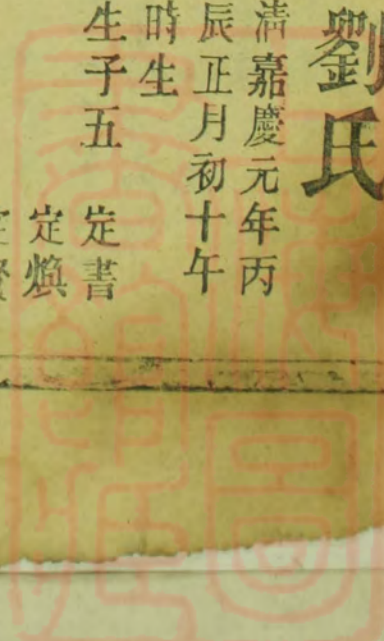 劉氏
清嘉慶元年丙
辰正月初十午
時生
生子五 定書
定煥